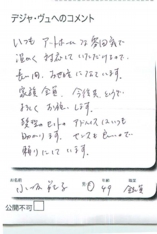 デジャ・ヴュへのコメント
いつも アットホームな雰囲気で
温かく 対応していただけるので、
長い間、お世話になっています。
家族全員、今後共、どうぞ
よろしく お願いします。
髪型のセットの アドバイスはいつも
助かります。センスも良いので
頼りにしています。
お名前
性
年齢
49
職業
会社員
公開不可